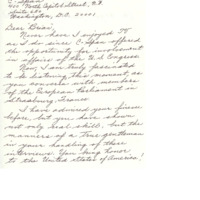 C-Span
400 North Capitol Street, N.W.
Suite 650
Washington, D.C. 20001
Dear Brian,
Never have I enjoyed TV
as I do since C-Span offered
the opportunity for involvement
in affairs of the U.S. Congress
Now, I am truly fascinated
to be listening this moment, as
you converse with members
of the European Parliament in
Strasbourg, France
I have admired your finesse
before, but you have shown
not only real skill, but the
manners of a true gentleman
in your handling of these
interviews. You bring honor
to the United States of America!